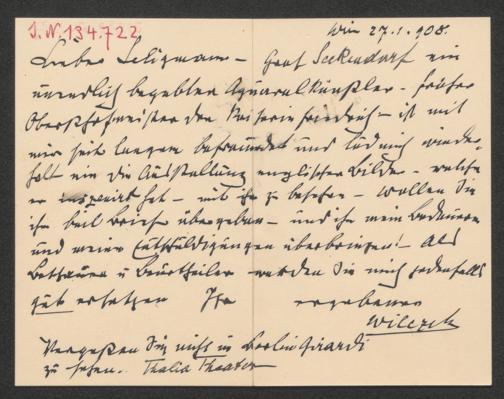 I.N. 134.722
Wien 27.1.908.
Lieber Seligmann – Graf Seckendorf ein
unendlich begabter Aquarellkünstler – früher
Obersthofmeister der Kaiserin Friedrich – ist mit
mir seit langem befreundet und lud mich wieder-
holt ein die Ausstellung englischer Bilder – welche
er inspirirt hat – mit ihm zu besehen – wollen Sie
ihm beil Brief übergeben – und ihm mein Bedauern
und meine Entschuldigungen überbringen! – Als
Beschauer u Beurtheiler werden Sie mich jedenfalls
gut ersetzen Ihr ergebener
Wilczek
Vergeßen Sie nicht in Berlin Girardi
zu sehen. Thalia Theater